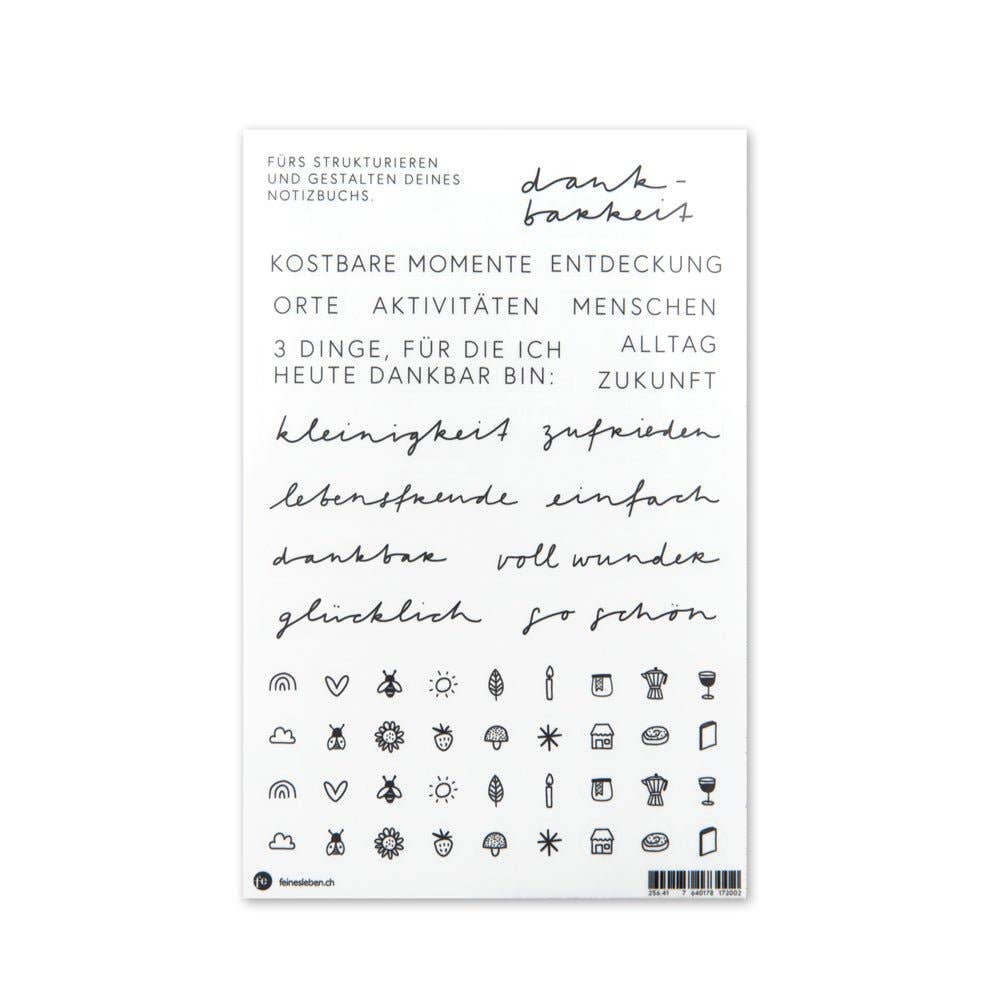 FÜRS STRUKTURIEREN
UND GESTALTEN DEINES
NOTIZBUCHS.
dank-
barkeit
KOSTBARE MOMENTE ENTDECKUNG
ORTE AKTIVITÄTEN MENSCHEN
3 DINGE, FÜR DIE ICH
HEUTE DANKBAR BIN:
ALLTAG
ZUKUNFT
kleinigkeit zufrieden
lebensfreude einfach
dankbar voll wunder
glücklich so schön
fe feinesleben.ch
256.41 7 640178 173002